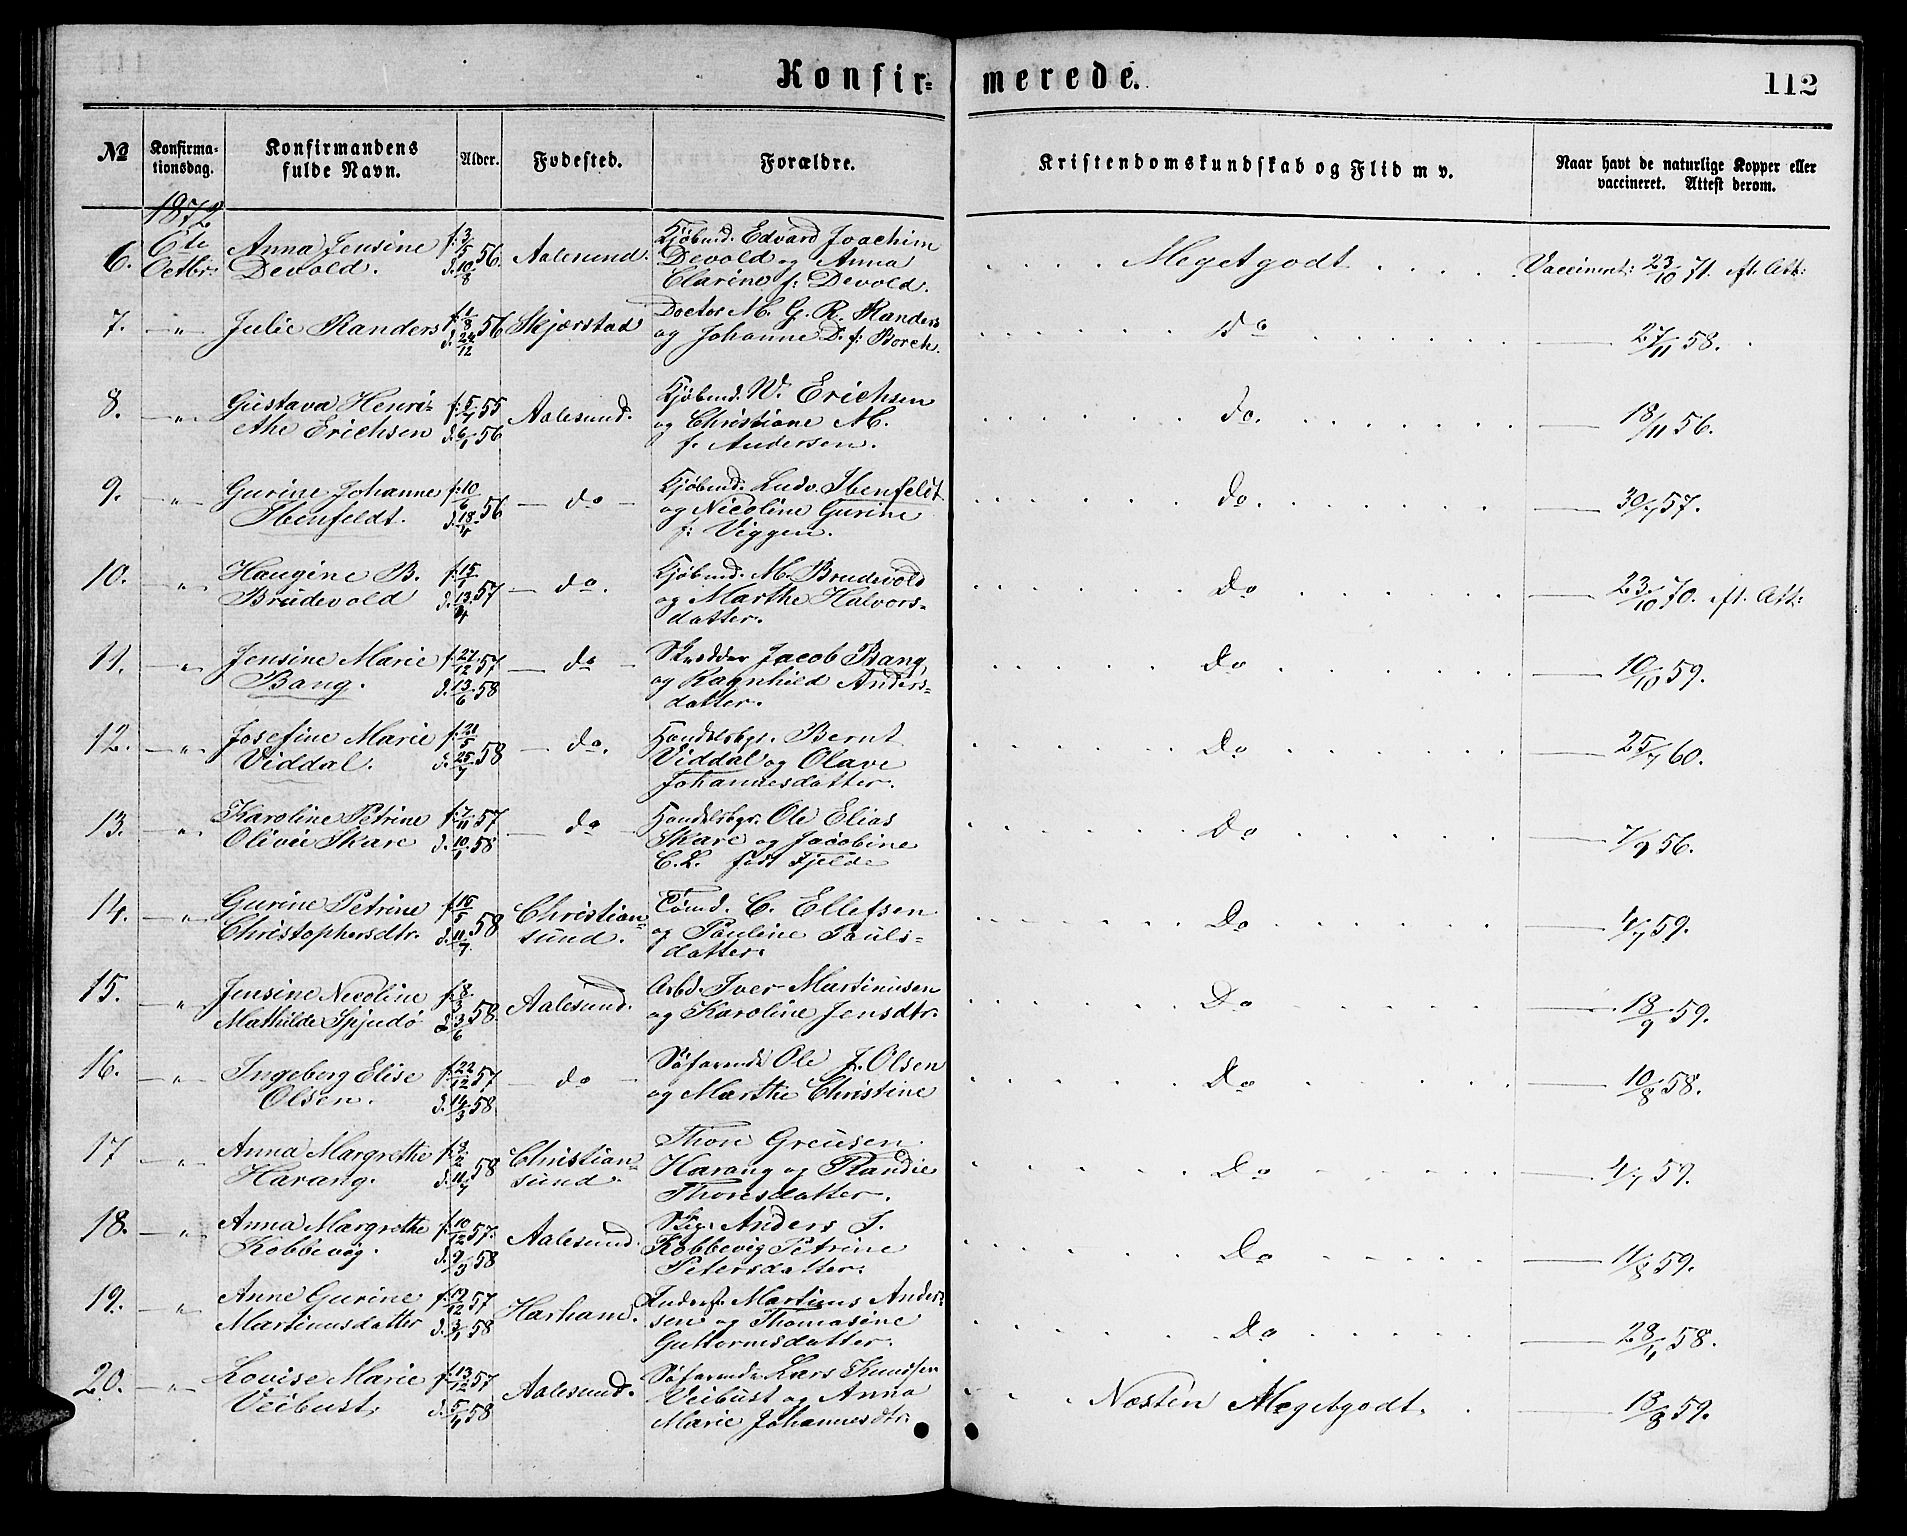 Konfir-
merede.
112
No
Konfirma-
tionsdag.
Konfirmandens
fulde Navn.
Alder.
Fødested.
Forældre.
Kristendomskundskab og Flid m v.
Naar havt de naturlige Kopper eller
vaccineret. Attest derom.
1872
6. 6te Octbr: Anna Jensine Devold. f. 3/5 d. 10/8 56. Aalesund. Kjøbmd. Edvard Joachim Devold og Anna Clarine f: Devold. Megetgodt Vaccineret: 23/10 71. eft. Att:
7. — " — Julie Randers f. 1/8 d. 24/12 56 Skjærstad Doctor M. G. R. Randers og Johanne D. f: Borch. Do 27/11 58.
8. — " Gustava Henri- ethe Erichsen f. 5/7 55 d. 6/1 56 Aalesund. Kjøbmd. W. Erichsen og Christiane M. f. Andersen. do. 18/11 56.
9. — " Gurine Johanne Ibenfeldt. f. 10/6 d. 18/4 56 — do — Kjøbmd. Ludv. Ibenfeldt og Nicoline Gurine f: Viggen. do. 30/7 57.
10. — " Haugine B. Brudevold f. 15/1 d. 13/4 57 — do. Kjøbmd. M. Brudevold og Marthe Halvors- datter. Do 23/10 70. eft. Att:
11. — " Jensine Marie Bang. f. 27/12 57 d. 13/6 58 — do — Skrædder Jacob Bang, og Ragnhild Anders- datter. Do 10/10 59.
12. — " Josefine Marie Viddal. f. 21/5 d. 25/7 58 — do. Handelsbgr. Bernt Viddal og Olave Johannesdatter. Do 25/7 60.
13. — " Karoline Petrine Olivie Skare f. 7/11 57 d. 10/1 58 — do — Handelsbgr. Ole Elias Skare og Jacobine C. L. født Fjelde Do 7/9 56.
14. — " Gurine Petrine Christophersdtr. f. 16/5 d. 11/7 58 Christian- sund. Tømd. C. Ellefsen og Pauline Pauls- datter. Do 4/7 59.
15. — " Jensine Nicoline Mathilde Spjudø f. 8/3 d. 3/6 58. Aalesund. Arbd. Iver Martinusen og Karoline Jensdtr. Do 18/9 59.
16. — " — Ingeborg Elise Olsen. f. 22/12 57 d. 14/3 58 — do — Søfarende Ole J. Olsen og Marthe Christine Do 10/8 58.
17 — " Anna Margrethe Harang. f. 3/2 d. 11/7 58 Christian- sund. Thore Greusen Harang og Randie Thoresdatter. Do 4/7 59.
18. — " Anna Margrethe Kobbevig. f. 10/12 57. d. 9/5 58 Aalesund. Anders J. Kobbevig Petrine Petersdatter. Do 11/8 59.
19. — " Anne Gurine Martinusdatter f. 12/12 57 d. 3/1 58 Harham. Martinus Ander- sen og Thomasine Guttormsdatter. Do 28/11 58.
20. — " — Lovise Marie Veibust, f. 13/12 57 d. 5/4 58 Aalesund. Søfarende Lars Knudsen Veibust og Anna Marie Johannesdtr. Næsten Megetgodt. 18/8 59.